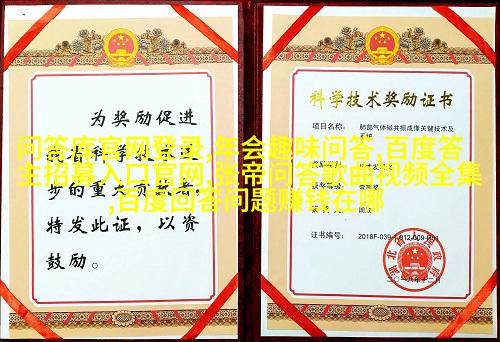 为奖励促进
我省科学技术进
步的重大贡献者,
特发此证,以资
鼓励。
科学技术奖励证书
项目名称: 肺部气体磁共振成像关键技术及
证书编号: 2018F-039-1-012-009-R01
湖北省人民政府
二〇一八年十二月
官网登录,年会趣味问答,百度答
主招募入口官网,张帝问答歌曲视频全集
,百度回答问题赚钱在哪